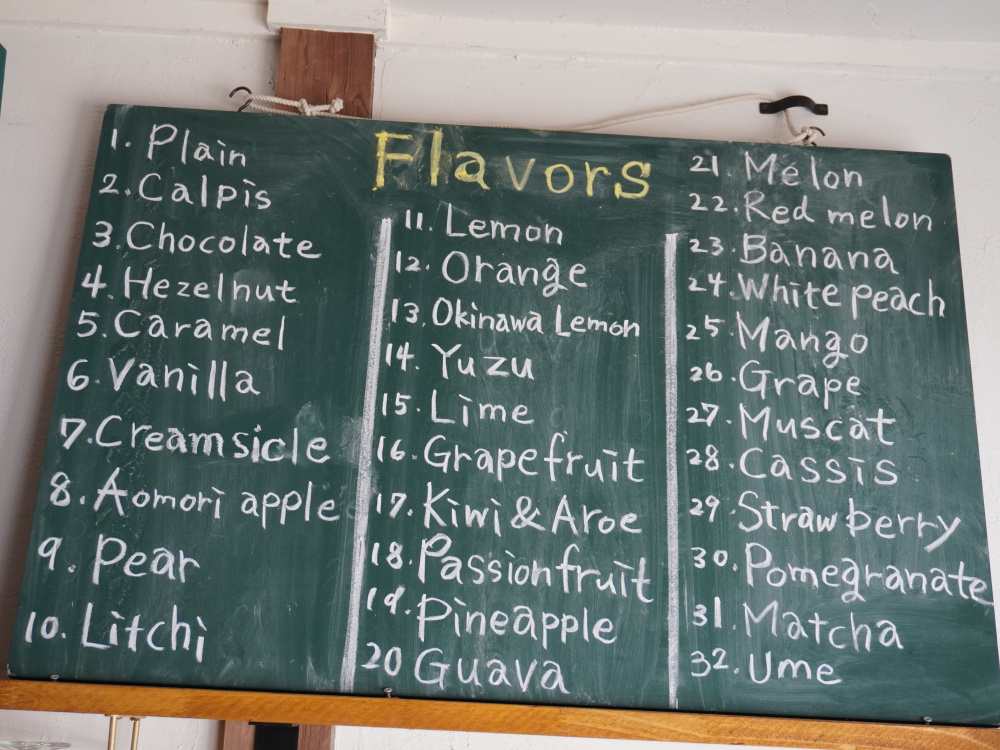 Flavors
1. Plain
2. Calpis
3. Chocolate
4. Hezelnut
5. Caramel
6. Vanilla
7. Creamsicle
8. Aomori apple
9. Pear
10. Litchi
11. Lemon
12. Orange
13. Okinawa Lemon
14. Yuzu
15. Lime
16. Grapefruit
17. Kiwi & Aroe
18. Passionfruit
19. Pineapple
20 Guava
21. Melon
22. Red melon
23. Banana
24. White peach
25. Mango
26. Grape
27. Muscat
28. Cassis
29. Strawberry
30. Pomegranate
31. Matcha
32. Ume